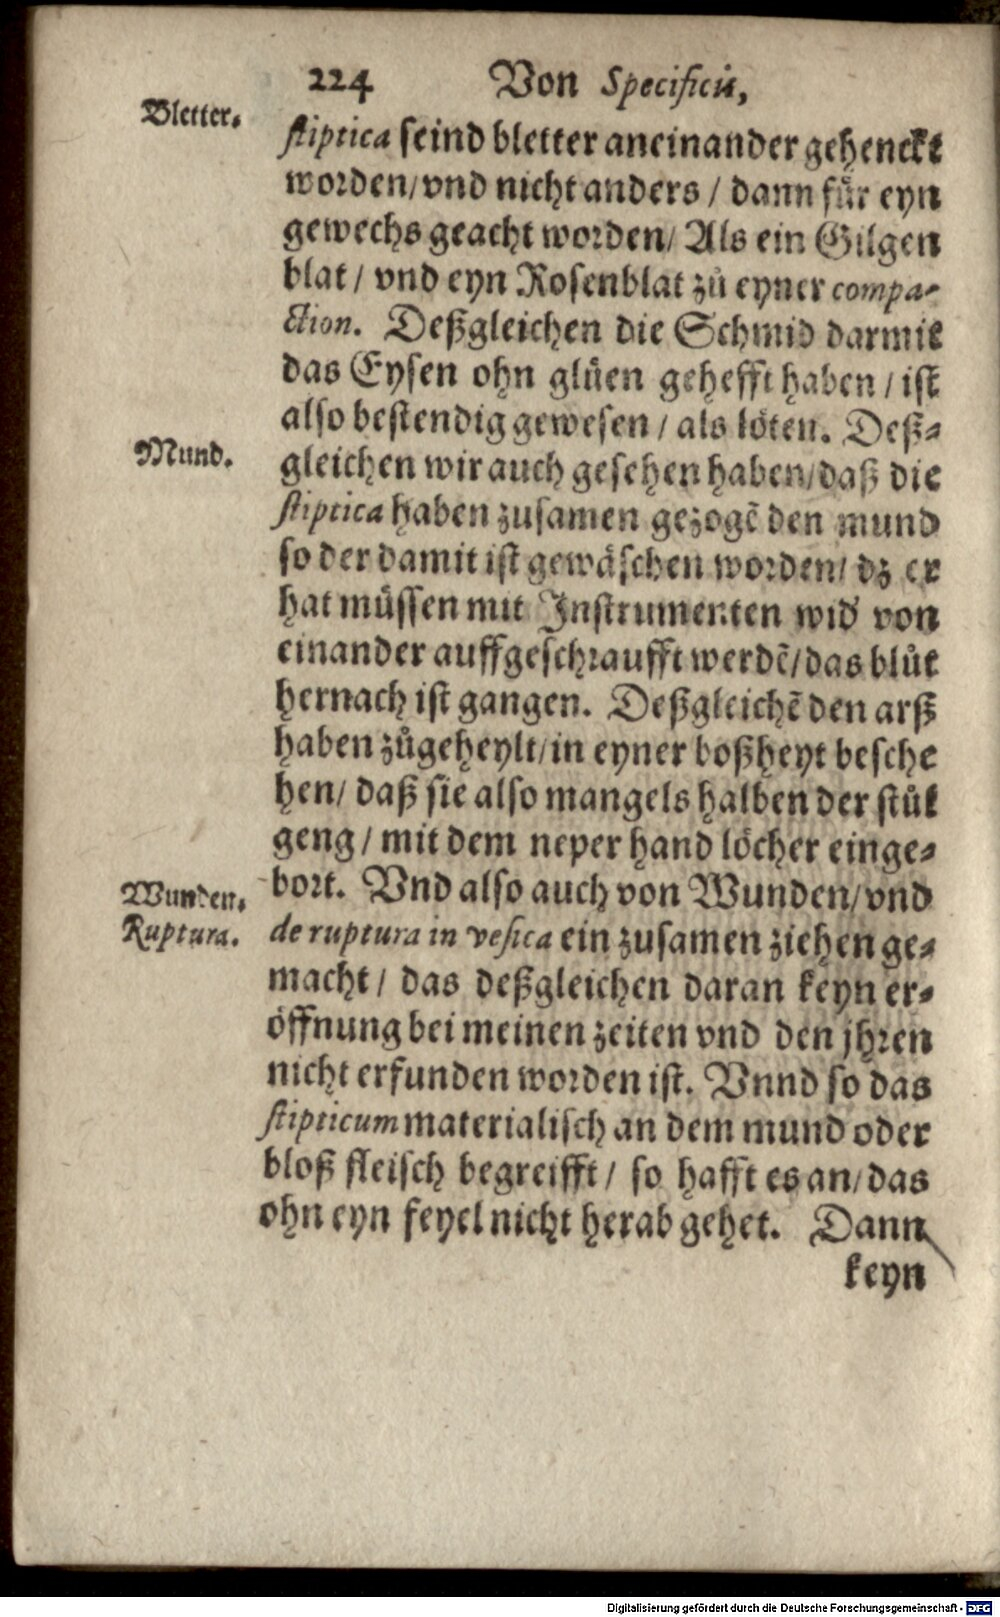 224 Von Specificis,
Bletter.
stiptica seind bletter aneinander gehenckt
worden/vnd nicht anders / dann für eyn
gewechs geacht worden/ Als ein Gilgen
blat / vnd eyn Rosenblat zů eyner compa-
ction. Deßgleichen die Schmid darmit
das Eysen ohn glüen gehefft haben / ist
also bestendig gewesen / als löten. Deß-
Mund.
gleichen wir auch gesehen haben/daß die
stiptica haben zusamen gezogẽ den mund
so der damit ist gewäschen worden/ dz er
hat müssen mit Instrumenten wid' von
einander auffgeschraufft werdẽ/das blůt
hernach ist gangen. Deßgleichẽ den arß
haben zůgeheylt/in eyner boßheyt besche
hen/ daß sie also mangels halben der stůl
geng / mit dem neper hand löcher einge-
Wunden.
bort. Vnd also auch von Wunden/vnd
Ruptura.
de ruptura in vesica ein zusamen ziehen ge-
macht / das deßgleichen daran keyn er-
öffnung bei meinen zeiten vnd den jhren
nicht erfunden worden ist. Vnnd so das
stipticum materialisch an dem mund oder
bloß fleisch begreifft / so hafft es an/das
ohn eyn feyel nicht herab gehet. Dann
keyn
Digitalisierung gefördert durch die Deutsche Forschungsgemeinschaft - DFG